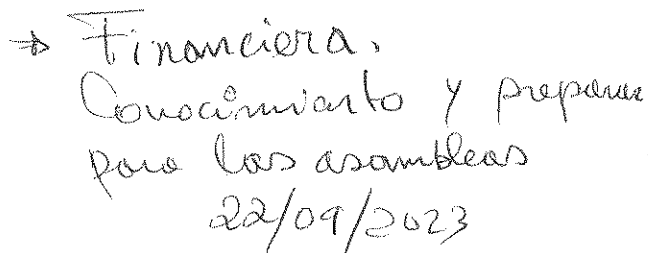 → Financiera.
Conocimiento y preparar
para las asambleas
22/09/2023